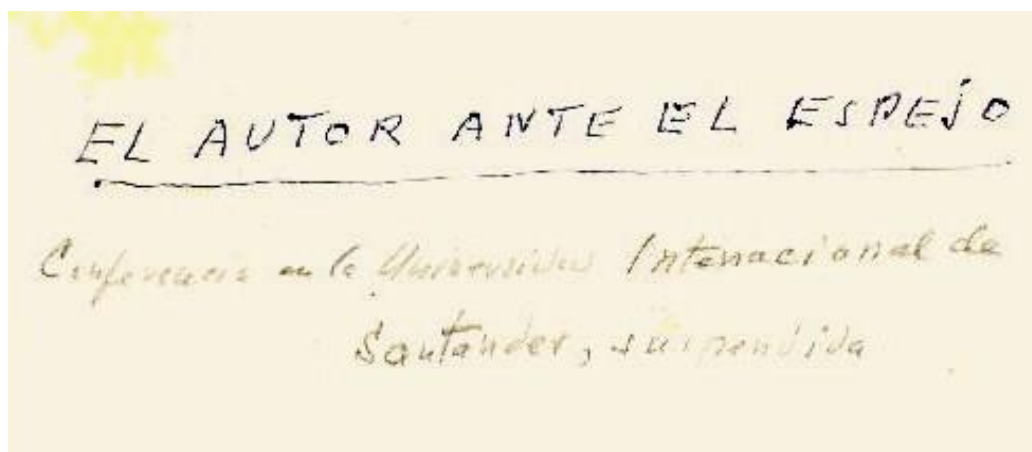 EL AUTOR ANTE EL ESPEJO
Conferencia en la Universidad Internacional de
Santander, suspendida